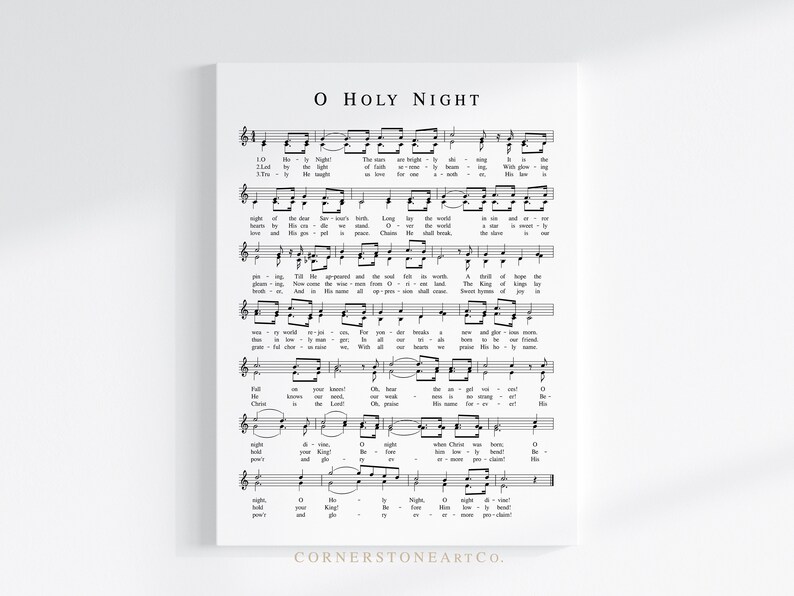 O HOLY NIGHT
1.O Ho - ly Night! The stars are bright - ly shi - ning It is the
2.Led by the light of faith se - rene - ly beam - ing, With glow - ing
3.Tru - ly He taught us love for one a - noth - er, His law is
night of the dear Sav - iour's birth. Long lay the world in sin and er - ror
hearts by His cra - dle we stand. O - ver the world a star is sweet - ly
love and His gos - pel is peace. Chains He shall break, the slave is our
pin - ing, Till He ap - peared and the soul felt its worth. A thrill of hope the
gleam - ing, Now come the wise - men from O - ri - ent land. The King of kings lay
broth - er, And in His name all op - pres - sion shall cease. Sweet hymns of joy in
wea - ry world re - joi - ces, For yon - der breaks a new and glor - ious morn.
thus in low - ly man - ger; In all our tri - als born to be our friend.
grate - ful chor - us raise we, With all our hearts we praise His ho - ly name.
Fall on your knees! Oh, hear the an - gel voi - ces! O
He knows our need, our weak - ness is no strang - er! Be -
Christ is the Lord! Oh, praise His name for - ev - er! His
night di - vine, O night when Christ was born; O
hold your King! Be - fore him low - ly bend! Be -
pow'r and glo - ry ev - er - more pro - claim! His
night, O Ho - ly Night, O night di - vine!
hold your King! Be - fore Him low - ly bend!
pow'r and glo - ry ev - er - more pro - claim!
CORNERSTONEARTCO.